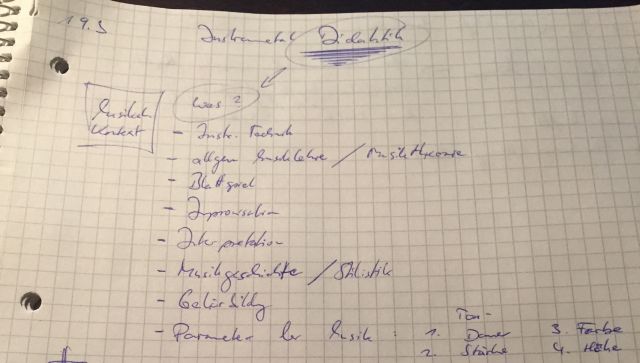 19.3
Instrumental Didaktik
Was?
Musikal.
Kontext
- Instr. Technik
- allgem Musiklehre / Musiktheorie
- Blattspiel
- Improvisation
- Interpretation
- Musikgeschichte / Stilistik
- Gehörbildg
- Parameter der Musik : 1. Ton-Dauer 3. Farbe
2. Stärke 4. Höhe